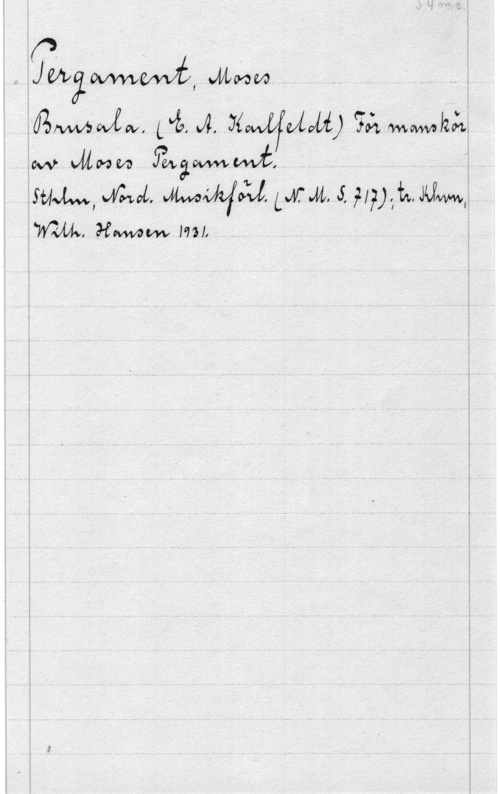 Pergament, Moses
Brusala. (E. A. Karlfeldt) För manskör
av Moses Pergament.
Sthlm, Nord. Musikförl. (N. M. S. 717); tr. Khvn,
Wilh. Hansen 1931.